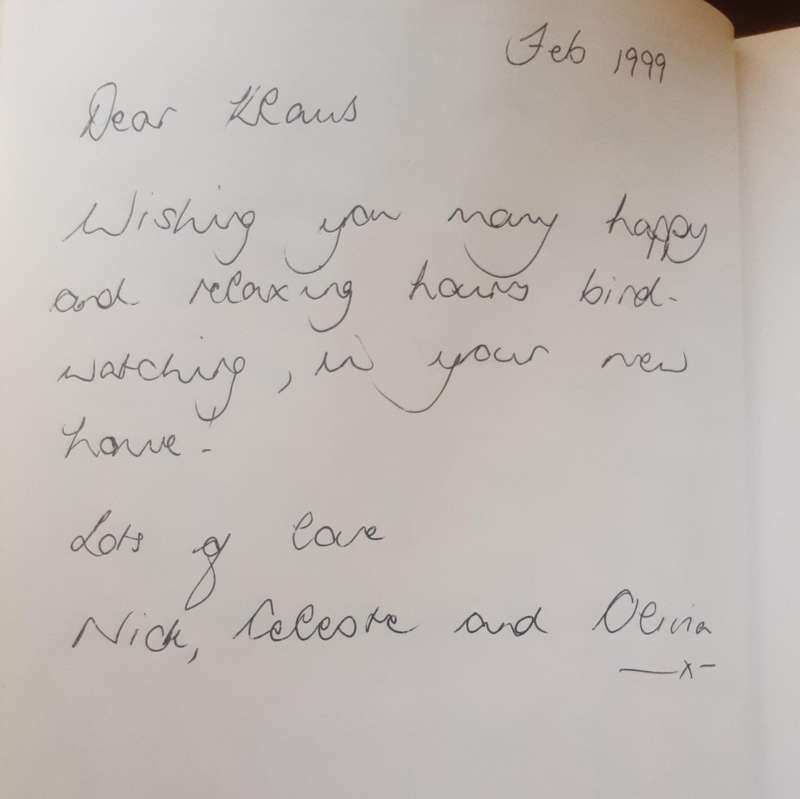 Feb 1999
Dear Klaus
Wishing you many happy
and relaxing hours bird-
watching, in your new
home.
Lots of love
Nick, Celeste and Olivia
x